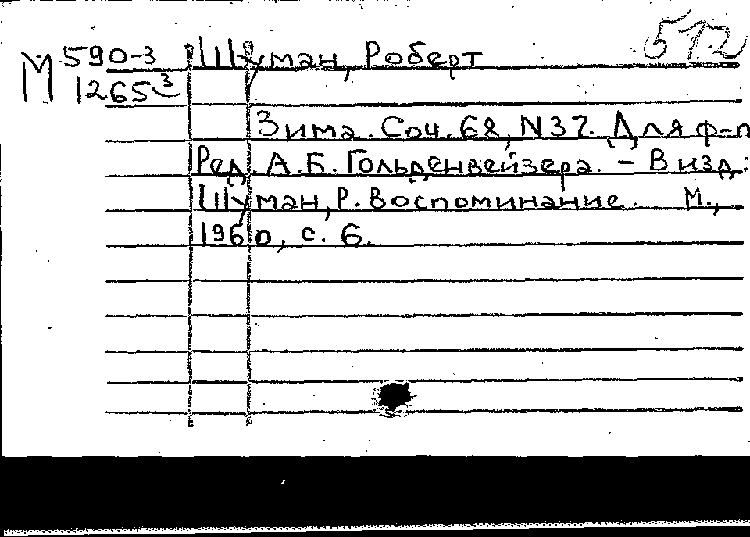 512
М 590-3 Шуман, Роберт
1265³
Зима. Соч. 68, N37. Для ф-п
Ред. А.Б. Гольденвейзера. – В изд:
Шуман, Р. Воспоминание. М.,
1960, с. 6.